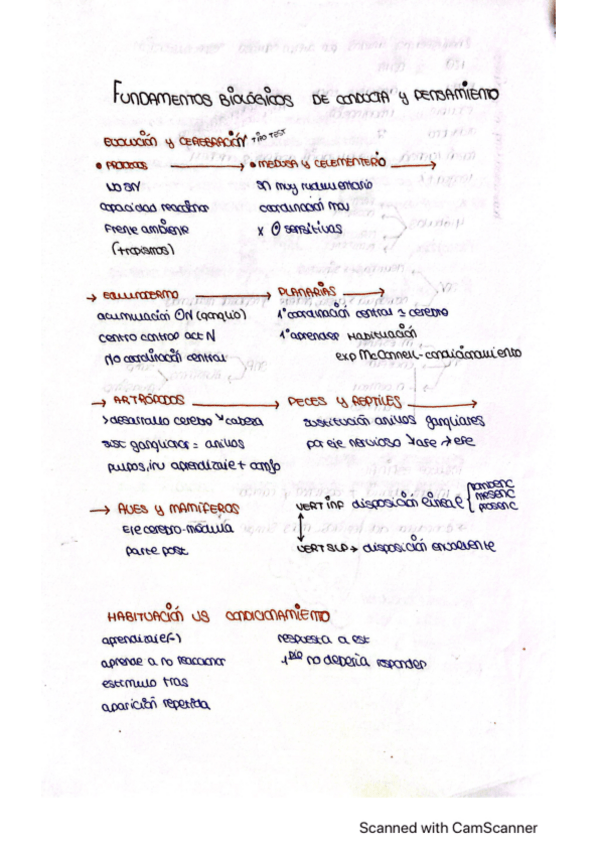 FUNDAMENTOS BIOLÓGICOS DE CONDUCTA Y PENSAMIENTO
EVOLUCIÓN Y CEREBRACIÓN TIPO TEST
• PROTOZOOS → • MEDUSA Y CELEMENTERIO →
NO SN
SN muy rudimentario
capacidad reaccionar
coordinación mov
Frente ambiente
x sensitivas
(tropismos)
→ EQUINODERMO → PLANARIAS →
acumulación N (ganglio)
1ª coordinación central = cerebro
centro control act N
1º aprender HABITUACIÓN
No coordinación central
exp McConnell - condicionamiento
→ ARTRÓPODOS → PECES Y REPTILES →
>desarrollo cerebro cabeza
sustitución anillos gangliares
sist ganglionar = anillos
por eje nervioso
pulpos, inv aprendizaje +
→ AVES Y MAMÍFEROS
VERT INF disposición lineal
ROMBENC
MESENC
PROSENC
Eje cerebro-médula
parte post
VERT SUP → disposición envolvente
HABITUACIÓN VS CONDICIONAMIENTO
aprendizaje (-)
respuesta a est
aprende a no reaccionar
no debería responder
estímulo tras
aparición repetida
Scanned with CamScanner